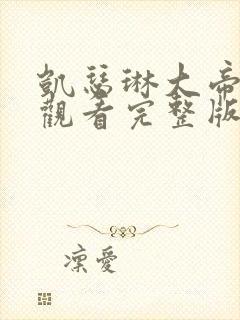 凱瑟琳大帝
觀看完整版
凜愛